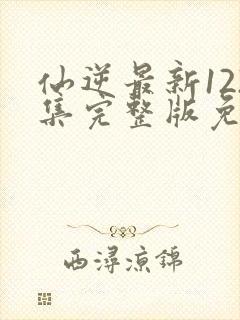 仙逆最新12
集完整版免
西潯涼錦